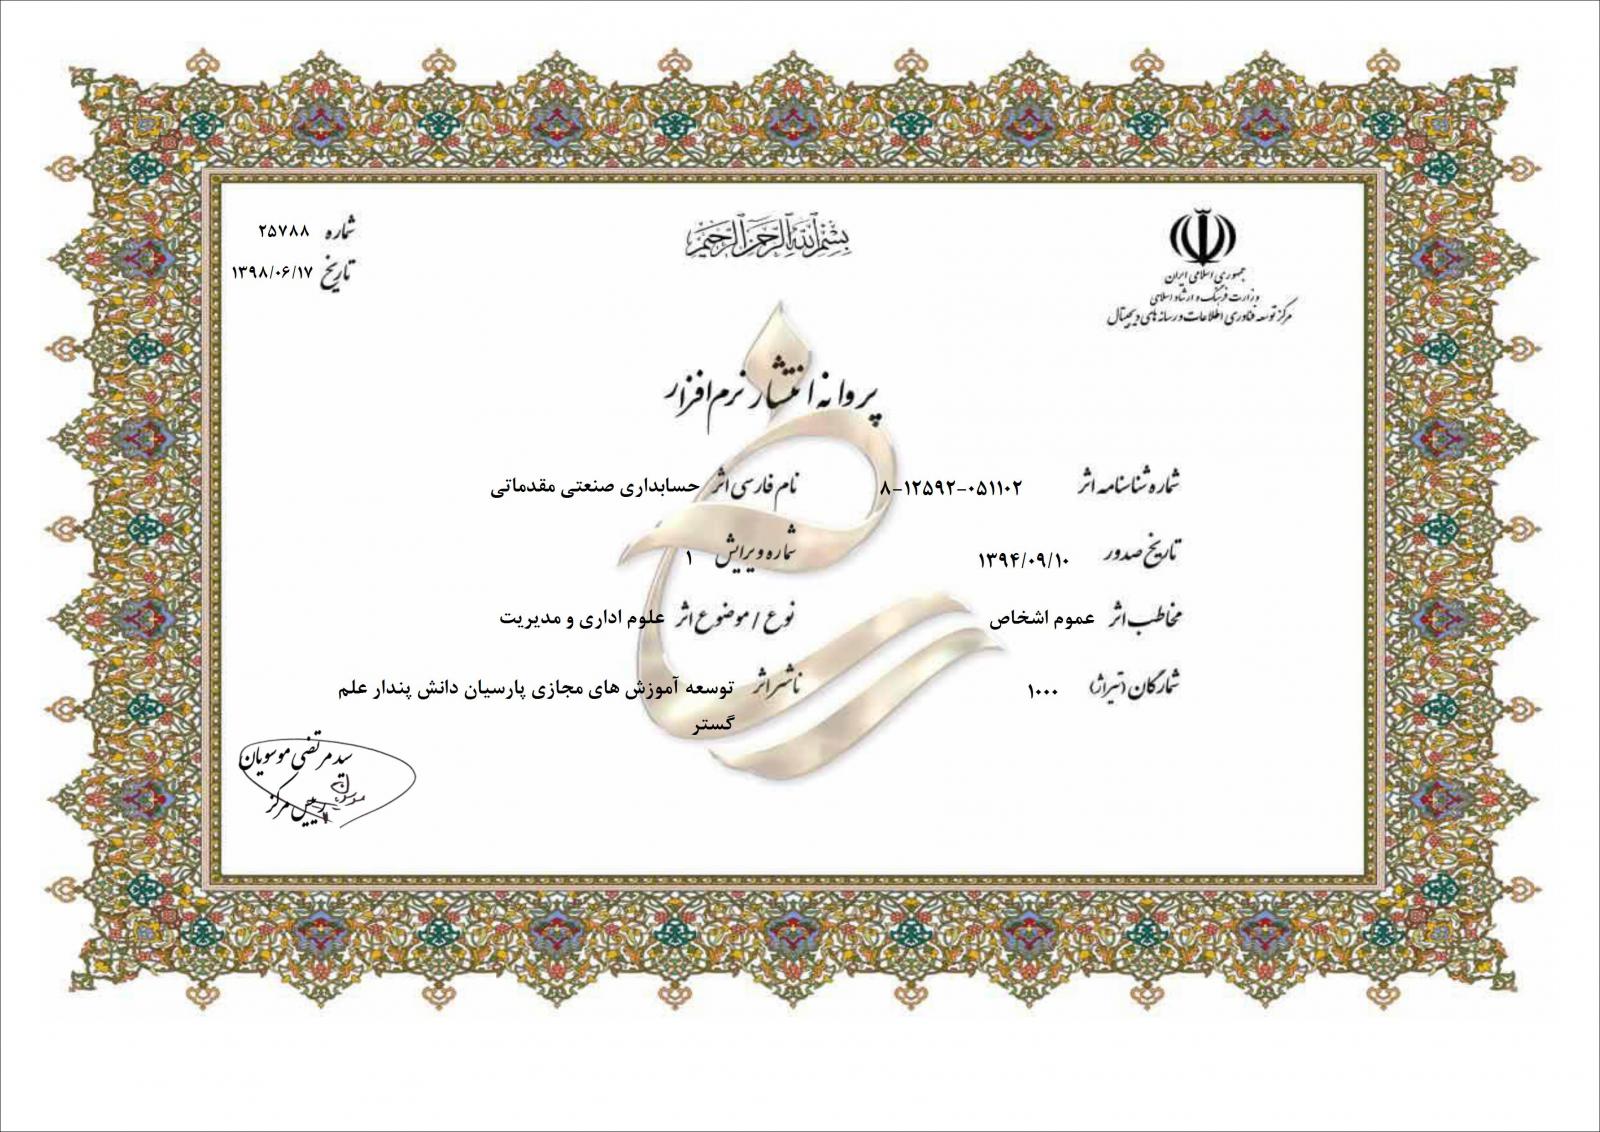 بسم الله الرحمن الرحیم
جمهوری اسلامی ایران
وزارت فرهنگ و ارشاد اسلامی
مرکز توسعه فناوری اطلاعات و رسانه های دیجیتال
شماره ۲۵۷۸۸
تاریخ ۱۳۹۸/۰۶/۱۷
پروانه انتشار نرم افزار
شماره شناسنامه اثر ۸-۱۲۵۹۲-۰۵۱۱۰۲
نام فارسی اثر حسابداری صنعتی مقدماتی
تاریخ صدور ۱۳۹۴/۰۹/۱۰
شماره ویرایش ۱
مخاطب اثر عموم اشخاص
نوع / موضوع اثر علوم اداری و مدیریت
شمارگان (تیراژ) ۱۰۰۰
ناشر اثر توسعه آموزش های مجازی پارسیان دانش پندار علم
گستر
سید مرتضی موسویان
رییس مرکز